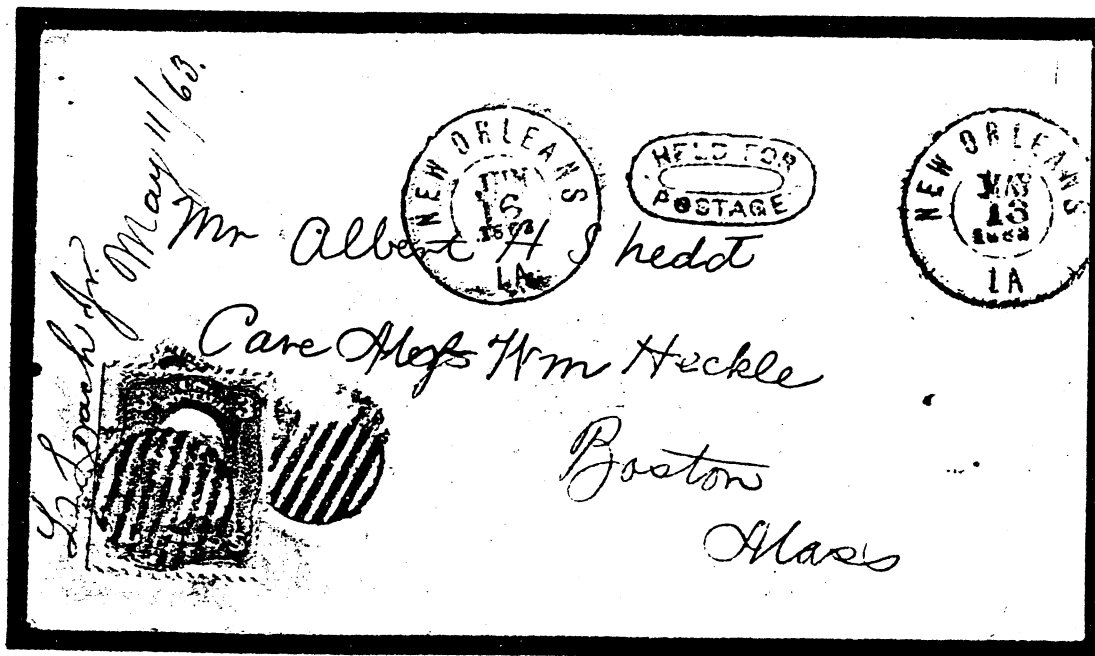 May 11/63.
NEW ORLEANS
JUN
16
1863
LA
HELD FOR
POSTAGE
NEW ORLEANS
MAY
13
1863
LA
Mr Albert H Shedd
Care Wm Heckle
Boston
Mass